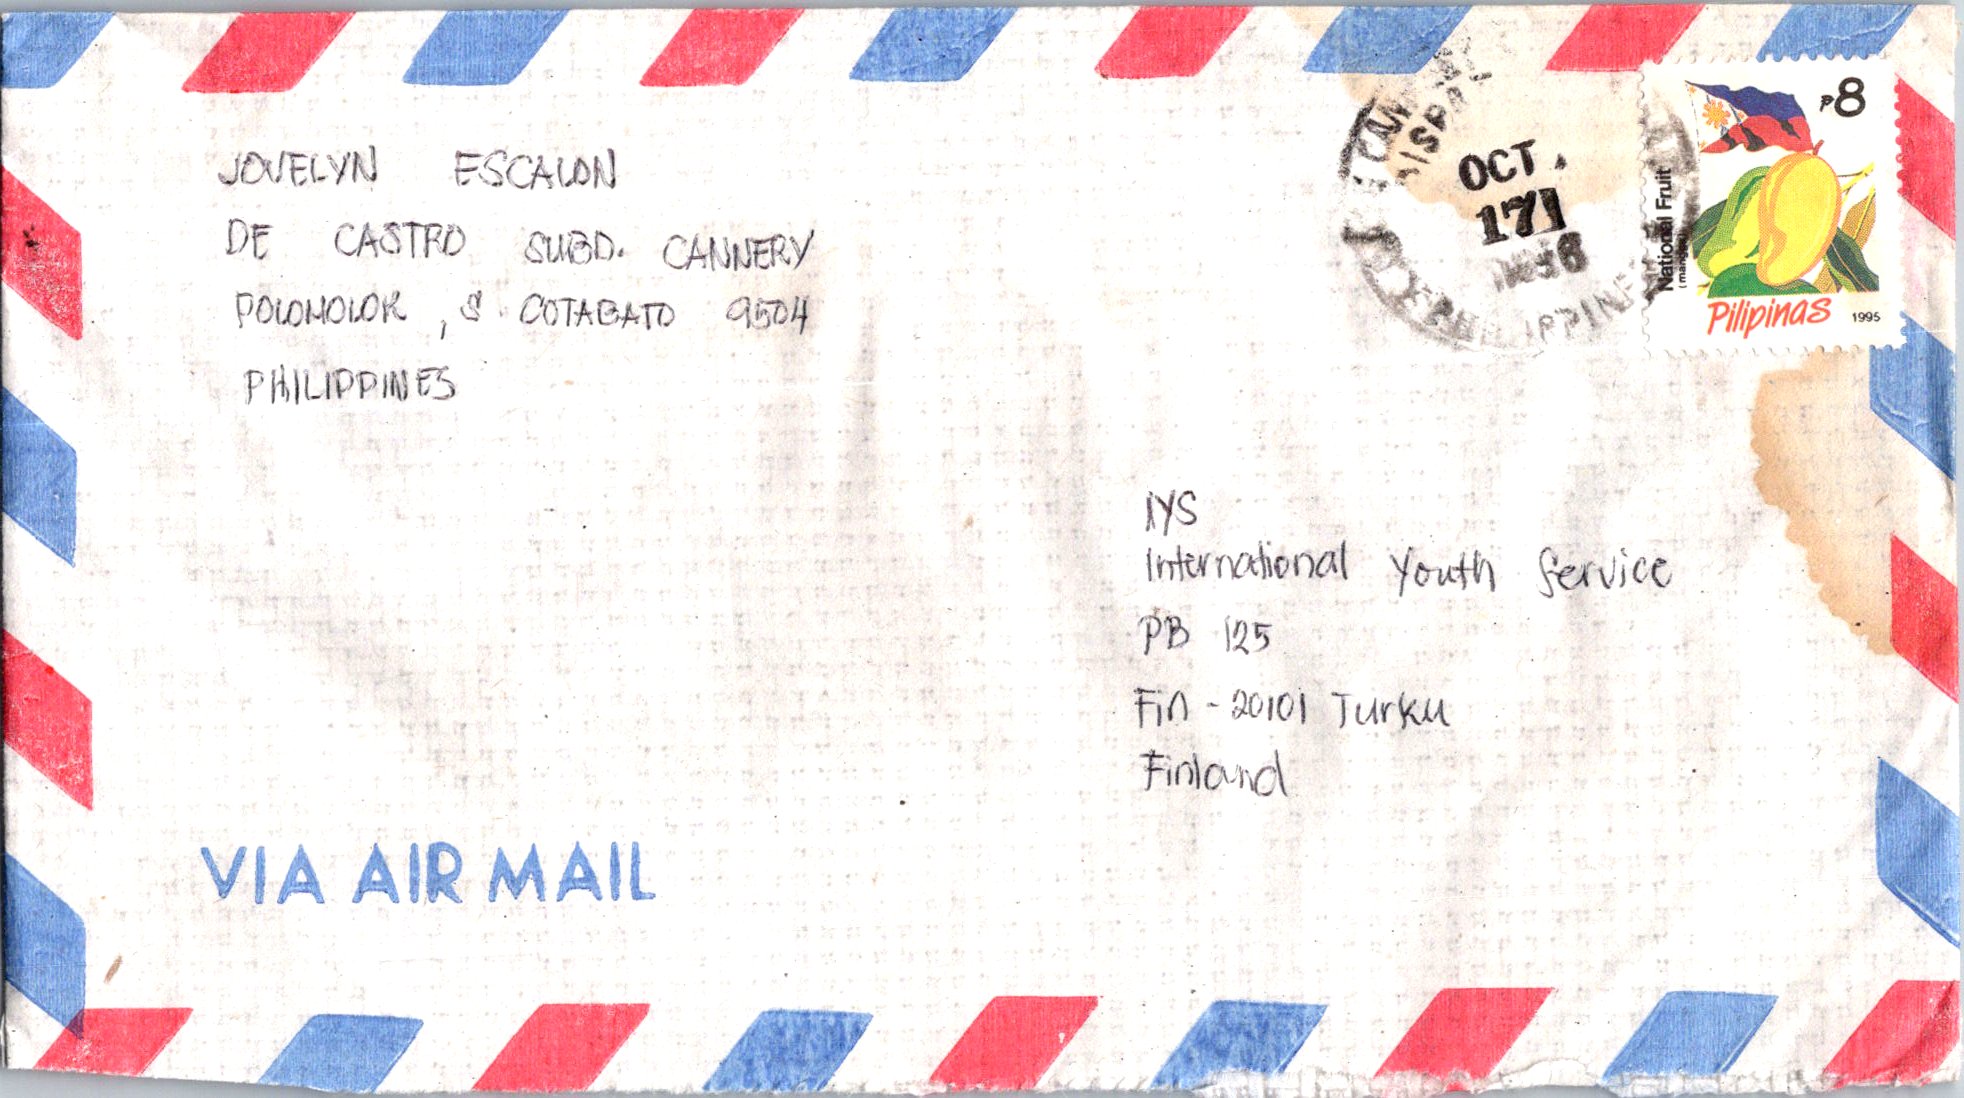 JOVELYN ESCALON
DE CASTRO SUBD. CANNERY
POLOMOLOK, S. COTABATO 9504
PHILIPPINES
OCT.
171
PHILIPPINE
₱8
National Fruit
Pilipinas 1995
IYS
International Youth Service
PB 125
Fin - 20101 Turku
Finland
VIA AIR MAIL